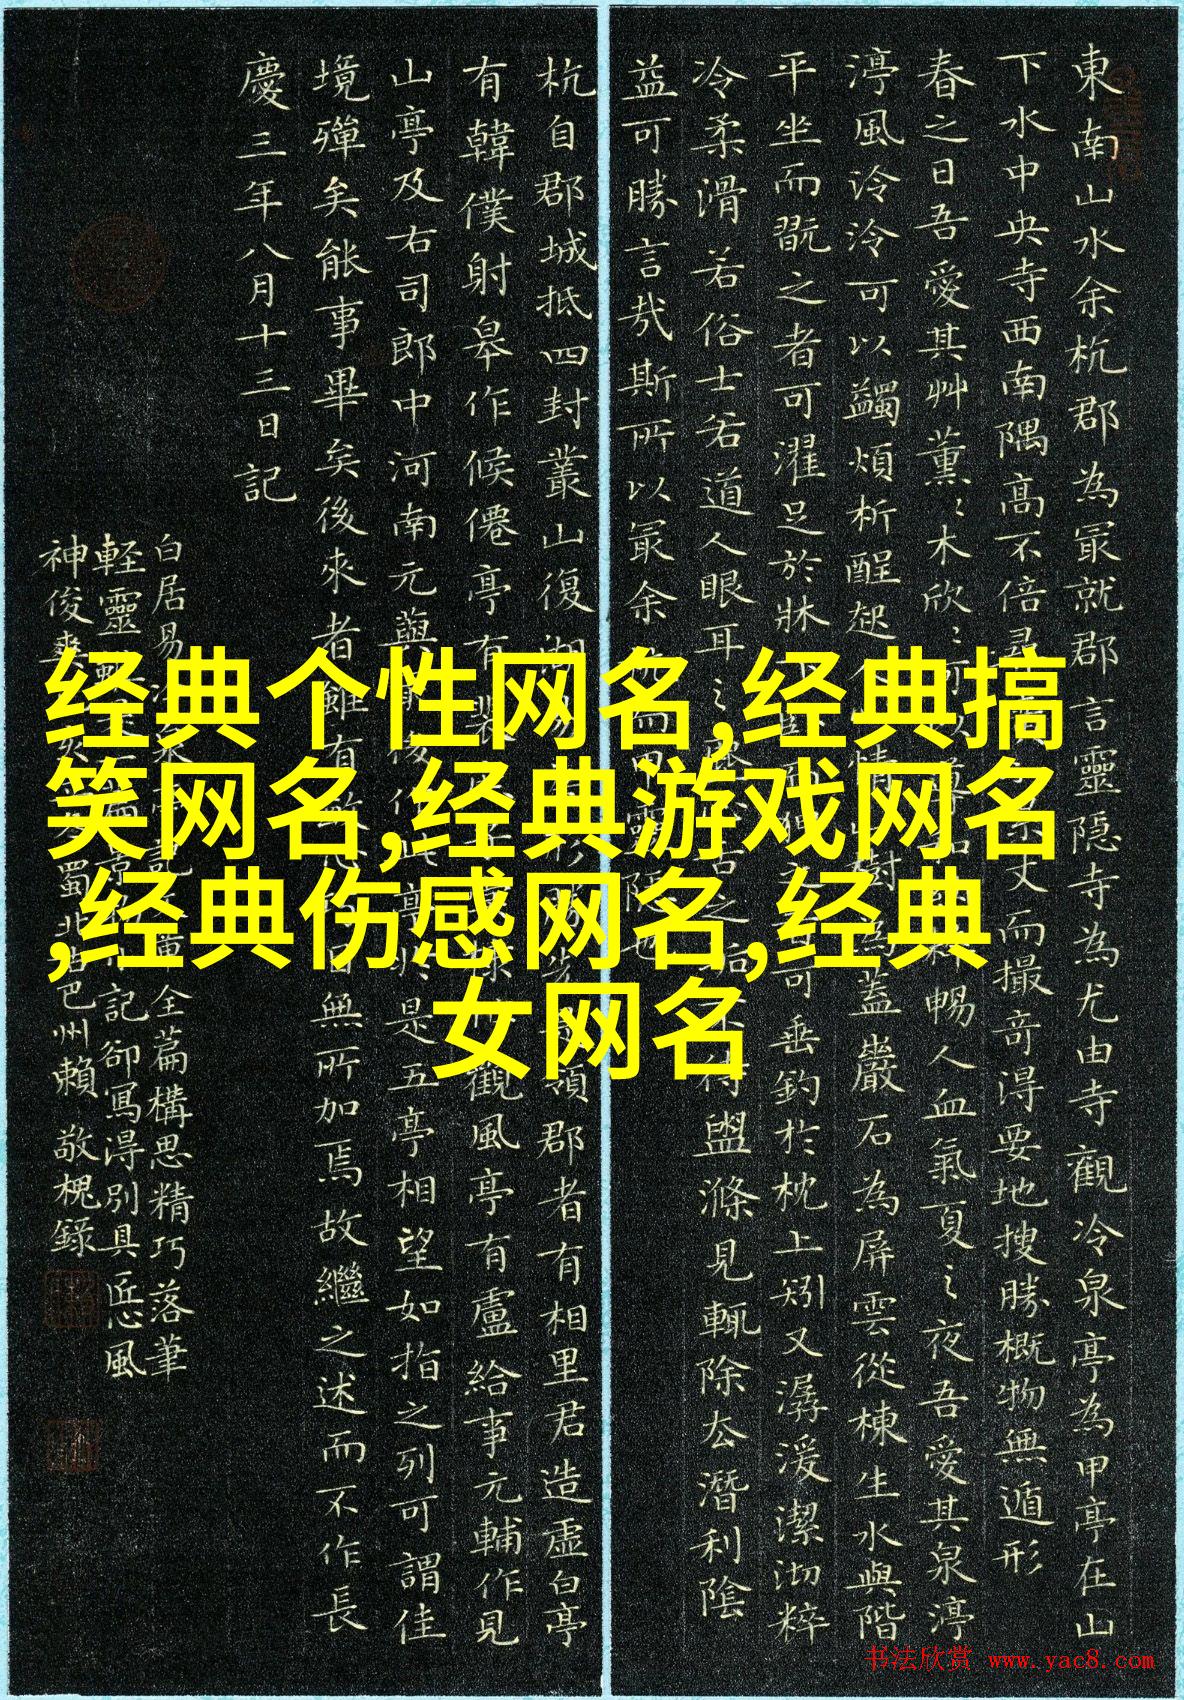 经典个性网名,经典搞
笑网名,经典游戏网名
,经典伤感网名,经典
女网名
東南山水余杭郡為冣就郡言靈隐寺為尤由寺觀冷泉亭為甲亭在山
下水中央寺西南隅高不倍尋丈而撮奇淂要地搜勝概物無遁形
春之日吾愛其艸薰〻木欣〻可以暢人血氣夏之夜吾愛其泉渟
渟風泠泠可以蠲煩析酲起情蓋巖石為屏雲從棟生水與階
平坐而翫之者可濯足於牀可垂釣於枕上矧又潺湲潔沏粹
冷柔滑若俗士若道人眼耳之盥滌見輒除去潛利陰
益可勝言哉斯所以冣余
杭自郡城抵四封叢山復湖領郡者有相里君造虛白亭
有韓僕射皋作候僊亭有裴觀風亭有盧給事元輔作見
山亭及右司郎中河南元藇是五亭相望如指之列可謂佳
境殫矣能事畢矣後來者雖有無所加焉故繼之述而不作長
慶三年八月十三日記
白居易全篇構思精巧落筆
軽靈記卻寫淂別具匠心風
神俊爽蜀北古巴州賴敬槐錄
书法欣赏 www.yac8.com